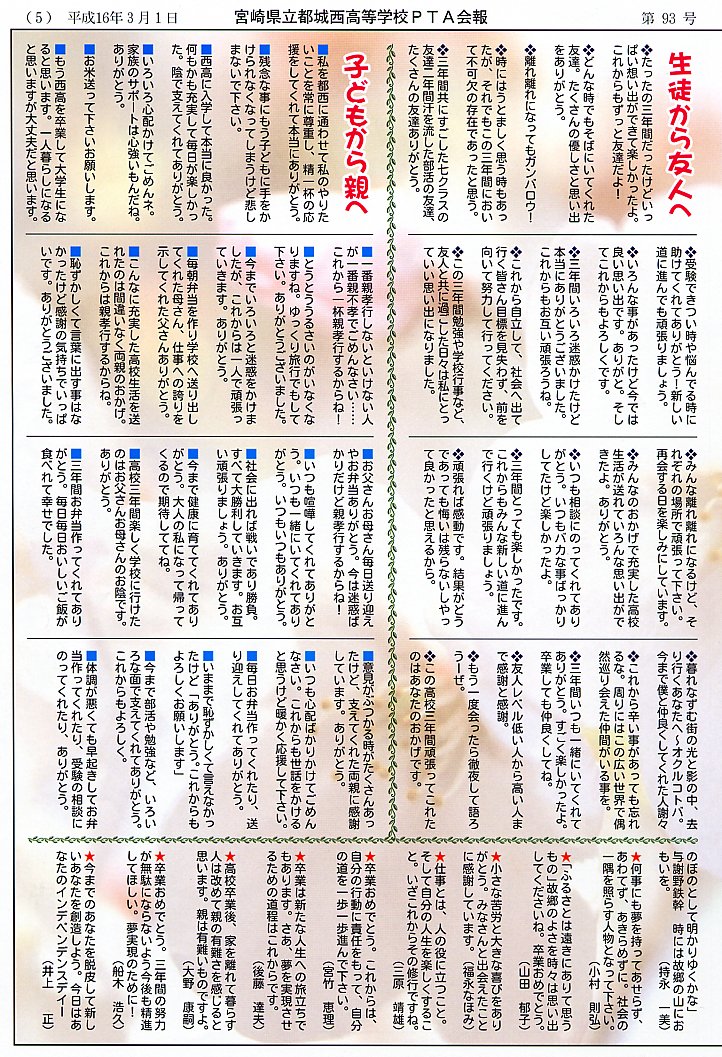 (5) 平成16年3月1日
宮崎県立都城西高等学校PTA会報
第 93 号
生徒から友人へ
❖たったの三年間だったけどいっ
ぱい想い出ができて楽しかったよ。
これからもずっと友達だよ！
❖どんな時でもそばにいてくれた
友達。たくさんの優しさと思い出
をありがとう。
❖離れ離れになってもガンバロウ！
❖時にはうとましく思う時もあっ
たが、それでもこの三年間におい
て不可欠の存在であったと思う。
❖三年間共にすごした七クラスの
友達二年間汗を流した部活の友達、
たくさんの友達ありがとう。
❖受験できつい時や悩んでる時に
助けてくれてありがとう！新しい
道に進んでも頑張りましょう。
❖いろんな事があったけど今では
良い思い出です。ありがと。そし
てこれからもよろしくです。
❖三年間いろいろ迷惑かけたけど
本当にありがとうございました。
これからもお互い頑張ろうね。
❖これから自立して、社会へ出て
行く皆さん目標を見失わず、前を
向いて努力して行ってください。
❖この三年間勉強や学校行事など、
友人と共に過ごした日々は私にとっ
ていい思い出になりました。
❖みんな離れ離れになるけど、そ
れぞれの場所で頑張って下さい。
再会する日を楽しみにしています。
❖みんなのおかげで充実した高校
生活が送れていろんな思い出がで
きたよ。ありがとう。
❖いつも相談にのってくれてあり
がとう。いつもバカな事ばっかり
してたけど楽しかったよ。
❖三年間とっても楽しかったです。
これからもみんな新しい道に進ん
で行くけど頑張りましょう。
❖頑張れば感動です。結果がどう
であっても悔いは残らないしやっ
て良かったと思えるから。
❖暮れなずむ街の光と影の中、去
り行くあなたへ～オクルコトバ。
今まで僕と仲良くしてくれた人謝々
❖これから辛い事があっても忘れ
るな。周りにはこの広い世界で偶
然巡り会えた仲間がいる事を。
❖三年間いつも一緒にいてくれて
ありがとう。すごく楽しかったよ。
卒業しても仲良くしてね。
❖友人レベル低い人から高い人ま
で感謝と感謝。
❖もう一度会ったら徹夜して語ろ
うーぜ。
❖この高校三年間頑張ってこれた
のはあなたのおかげです。
子どもから親へ
■私を都西に通わせて私のやりた
いことを常に尊重し、精一杯の応
援をしてくれて本当にありがとう。
■残念な事にもう子どもに手をか
けられなくなってしまうけど悲し
まないで下さい。
■西高に入学して本当に良かった。
何もかも充実して毎日が楽しかっ
た。陰で支えてくれてありがとう。
■いろいろ心配かけてごめんネ。
家族のサポートは心強いもんだね。
ありがとう。
■お米送って下さいお願いします。
■もう西高を卒業して大学生にな
ると思います。一人暮らしになる
と思いますが大丈夫だと思います。
■一番親孝行しないといけない人
が一番親不孝でごめんなさい……
これから一杯親孝行するからね！
■とうとううるさいのがいなくな
りますね。ゆっくり旅行でもして
下さい。ありがとうございました。
■今までいろいろと迷惑をかけま
したが、これからは一人で頑張っ
ていきます。ありがとう。
■毎朝弁当を作り学校へ送り出し
てくれた母さん、仕事への誇りを
示してくれた父さんありがとう。
■こんなに充実した高校生活を送
れたのは間違いなく両親のおかげ。
これからは親孝行するからね。
■恥ずかしくて言葉に出す事はな
かったけど感謝の気持ちでいっぱ
いです。ありがとうございました。
■お父さんお母さん毎日送り迎え
やお弁当ありがとう。今は迷惑ば
かりだけど親孝行するからね！
■いつも喧嘩してくれてありがと
う。いつも一緒にいてくれてあり
がとう。いつもいつもありがとう。
■社会に出れば戦いであり勝負。
すべて大勝利していきます。お互
い頑張りましょう。ありがとう。
■今まで健康に育ててくれてあり
がとう。大人の私になって帰って
くるので期待しててね。
■高校三年間楽しく学校に行けた
のはお父さんお母さんのお陰です。
ありがとう。
■三年間お弁当作ってくれてあり
がとう。毎日毎日おいしいご飯が
食べれて幸せでした。
■意見がぶつかる時がたくさんあっ
たけど、支えてくれた両親に感謝
しています。ありがとう。
■いつも心配ばかりかけてごめん
なさい。これからも世話をかける
と思うけど暖かく応援して下さい。
■毎日お弁当作ってくれたり、送
り迎えしてくれてありがとう。
■いままで恥ずかしくて言えなかっ
たけど「ありがとう。これからも
よろしくお願いします」
■今まで部活や勉強など、いろい
ろな面で支えてくれてありがとう。
これからもよろしく。
■体調が悪くても早起きしてお弁
当作ってくれたり、受験の相談に
のってくれたり、ありがとう。
のぼのとして明かりゆくかな」
与謝野鉄幹　時には故郷の山にお
もいを。　（持永　一美）
★何事にも夢を持ってあせらず、
あわてず、あきらめずに。社会の
一隅を照らす人物となって下さい。
（小村　則弘）
★「ふるさとは遠きにありて思う
もの」故郷のよさを時々は思い出
してくださいね。卒業おめでとう。
（山田　郁子）
★小さな苦労と大きな喜びをあり
がとう。みなさんと出会えたこと
に感謝しています。（福永なほみ）
★仕事とは、人の役に立つこと。
そして自分の人生を楽しくするこ
と。いざこれからその修行ですね。
（三原　靖雄）
★卒業おめでとう。これからは、
自分の行動に責任をもって、自分
の道を一歩一歩進んで下さい。
（宮竹　恵理）
★卒業は新たな人生への旅立ちで
もあります。さあ、夢を実現させ
るための道程はこれからです。
（後藤　達夫）
★高校卒業後、家を離れて暮らす
人は改めて親の有難さを感じると
思います。親は有難いものですよ。
（大野　康嗣）
★卒業おめでとう。三年間の努力
が無駄にならないよう今後も精進
してほしい。夢実現のために！
（船木　浩久）
★今までのあなたを脱皮して新し
いあなたを創造しよう。今日はあ
なたのインデペンデンスデイー
（井上　正）